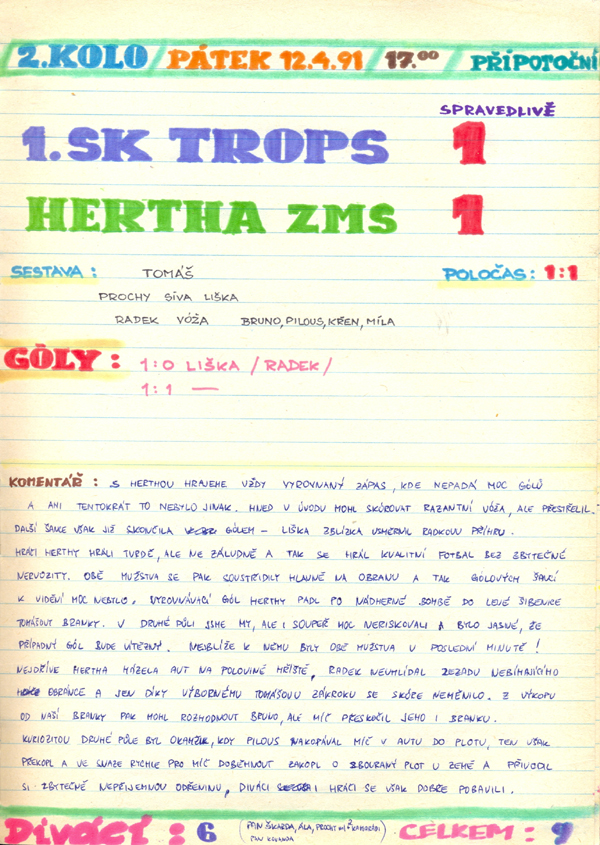 2.KOLO / PÁTEK 12.4.91 / 17.00 PŘÍPOTOČNÍ
SPRAVEDLIVĚ
1.SK TROPS 1
HERTHA ZMS 1
SESTAVA: TOMÁŠ POLOČAS: 1:1
PROCHY SÍVA LIŠKA
RADEK VÓŽA BRUNO, PILOUS, KŘEN, MÍLA
GÓLY: 1:0 LIŠKA /RADEK/
1:1 —
KOMENTÁŘ: S HERTHOU HRAJEME VŽDY VYROVNANÝ ZÁPAS, KDE NEPADÁ MOC GÓLŮ
A ANI TENTOKRÁT TO NEBYLO JINAK. HNED V ÚVODU MOHL SKÓROVAT RAZANTNÍ VÓŽA, ALE PŘESTŘELIL.
DALŠÍ ŠANCE VŠAK JIŽ SKONČILA GÓLEM - LIŠKA ZBLÍZKA USMĚRNIL RADKOVU PŘIHRU.
HRÁČI HERTHY HRÁLI TVRDĚ, ALE NE ZÁLUDNĚ A TAK SE HRÁL KVALITNÍ FOTBAL BEZ ZBYTEČNÉ
NERVOZITY. OBĚ MUŽSTVA SE PAK SOUSTŘIDILY HLAVNĚ NA OBRANU A TAK GÓLOVÝCH ŠANCÍ
K VIDĚNÍ MOC NEBYLO. VYROVNÁVACÍ GÓL HERTHY PADL PO NÁDHERNÉ BOMBĚ DO LEVÉ ŠIBENICE
TOMÁŠOVY BRANKY. V DRUHÉ PŮLI JSME MY, ALE I SOUPEŘ MOC NERISKOVALI A BYLO JASNÉ, ŽE
PŘÍPADNÝ GÓL BUDE VÍTĚZNÝ. NEJBLÍŽE K NĚMU BYLY OBĚ MUŽSTVA V POSLEDNÍ MINUTĚ!
NEJDŘÍVE HERTHA HÁZELA AUT NA POLOVINĚ HŘIŠTĚ, RADEK NEUHLÍDAL ZEZADU NABÍHAJÍCÍHO
OBRÁNCE A JEN DÍKY VÝBORNÉMU TOMÁŠOVU ZÁKROKU SE SKÓRE NEMĚNILO. Z VÝKOPU
OD NAŠÍ BRANKY PAK MOHL ROZHODNOUT BRUNO, ALE MÍČ PŘESKOČIL JEHO I BRANKU.
KURIOZITOU DRUHÉ PŮLE BYL OKAMŽIK, KDY PILOUS NAKOPÁVAL MÍČ V AUTU DO PLOTU, TEN VŠAK
PŘEKOPL A VE SNAZE RYCHLE PRO MÍČ DOBĚHNOUT ZAKOPL O ZBOURANÝ PLOT U ZEMĚ A PŘIVODIL
SI ZBYTEČNĚ NEPŘÍJEMNOU ODŘENINU, DIVÁCI I HRÁČI SE VŠAK DOBŘE POBAVILI.
DIVÁCI: 6 CELKEM: 9